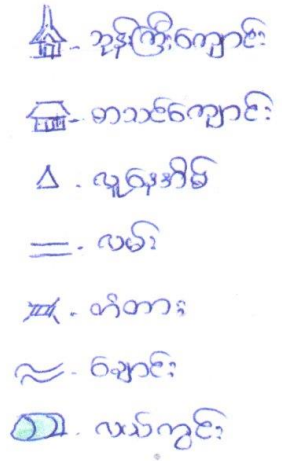 - ဘုန်းကြီးကျောင်း
- စာသင်ကျောင်း
- လူနေအိမ်
- လမ်း
- တံတား
- ချောင်း
- လယ်ကွင်း